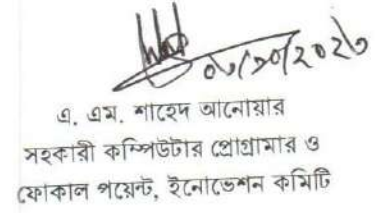 ০৮/১০/২০২৩
এ. এম. শাহেদ আনোয়ার
সহকারী কম্পিউটার প্রোগ্রামার ও
ফোকাল পয়েন্ট, ইনোভেশন কমিটি